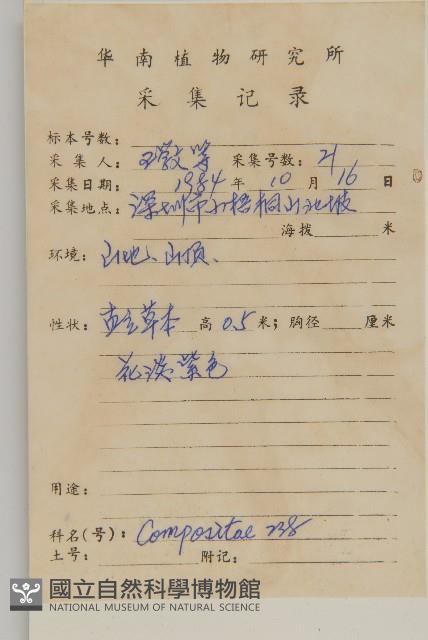 华南植物研究所
采集记录
标本号数：
采集人： 王学文等 采集号数： 21
采集日期： 1984 年 10 月 16 日
采集地点： 深圳市小梧桐山北坡
海拨 米
环境： 山地、山顶、
性状： 直立草本 高 0.5 米；胸径 厘米
花淡紫色
用途：
科名(号)： Compositae 238
土号： 附记：
國立自然科學博物館
NATIONAL MUSEUM OF NATURAL SCIENCE